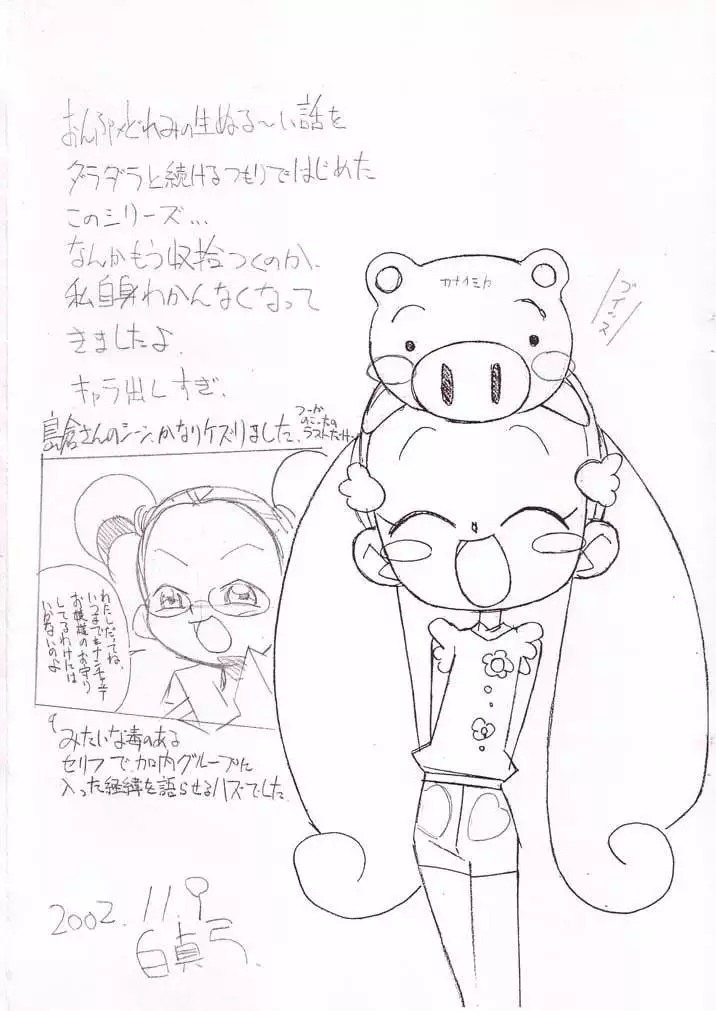 おんぷ×どれみの生ぬる〜い話を
ダラダラと続けるつもりではじめた
このシリーズ…
なんかもう収拾つくのか、
私自身わかんなくなって
きましたよ。
キャラ出しすぎ。
島倉さんのシーン、かなりケズりました。
つーか
のこったの
ラストだけ
わたしだってね、
いつまでもナンチャッテ
お嬢様のお守り
してるわけには
いかないのよ
みたいな毒のある
セリフで加内グループに
入った経緯を語らせるハズでした。
カナイミカ
ブイッス
2002.11.9
白真弓